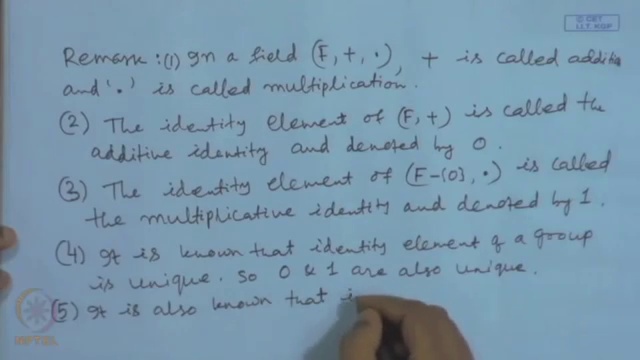 © CET
I.I.T. KGP
Remark : (1) In a field (F, +, ·), + is called additi
and '·' is called multiplication.
(2) The identity element of (F, +) is called the
additive identity and denoted by 0.
(3) The identity element of (F-{0}, ·) is called
the multiplicative identity and denoted by 1.
(4) It is known that identity element of a group
is unique. So 0 & 1 are also unique.
(5) It is also known that i
NPTEL